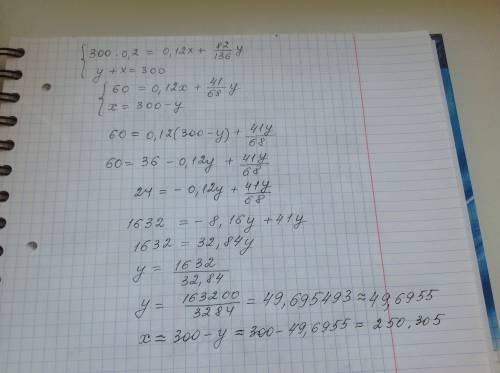 300·0,2 = 0,12x + 82/136 y
y + x = 300
60 = 0,12x + 41/68 y
x = 300 - y
60 = 0,12(300 - y) + 41y/68
60 = 36 - 0,12y + 41y/68
24 = - 0,12y + 41y/68
1632 = - 8,16y + 41y
1632 = 32,84y
y = 1632/32,84
y = 163200/3284 = 49,695493 ≈ 49,6955
x ≈ 300 - y ≈ 300 - 49,6955 ≈ 250.305